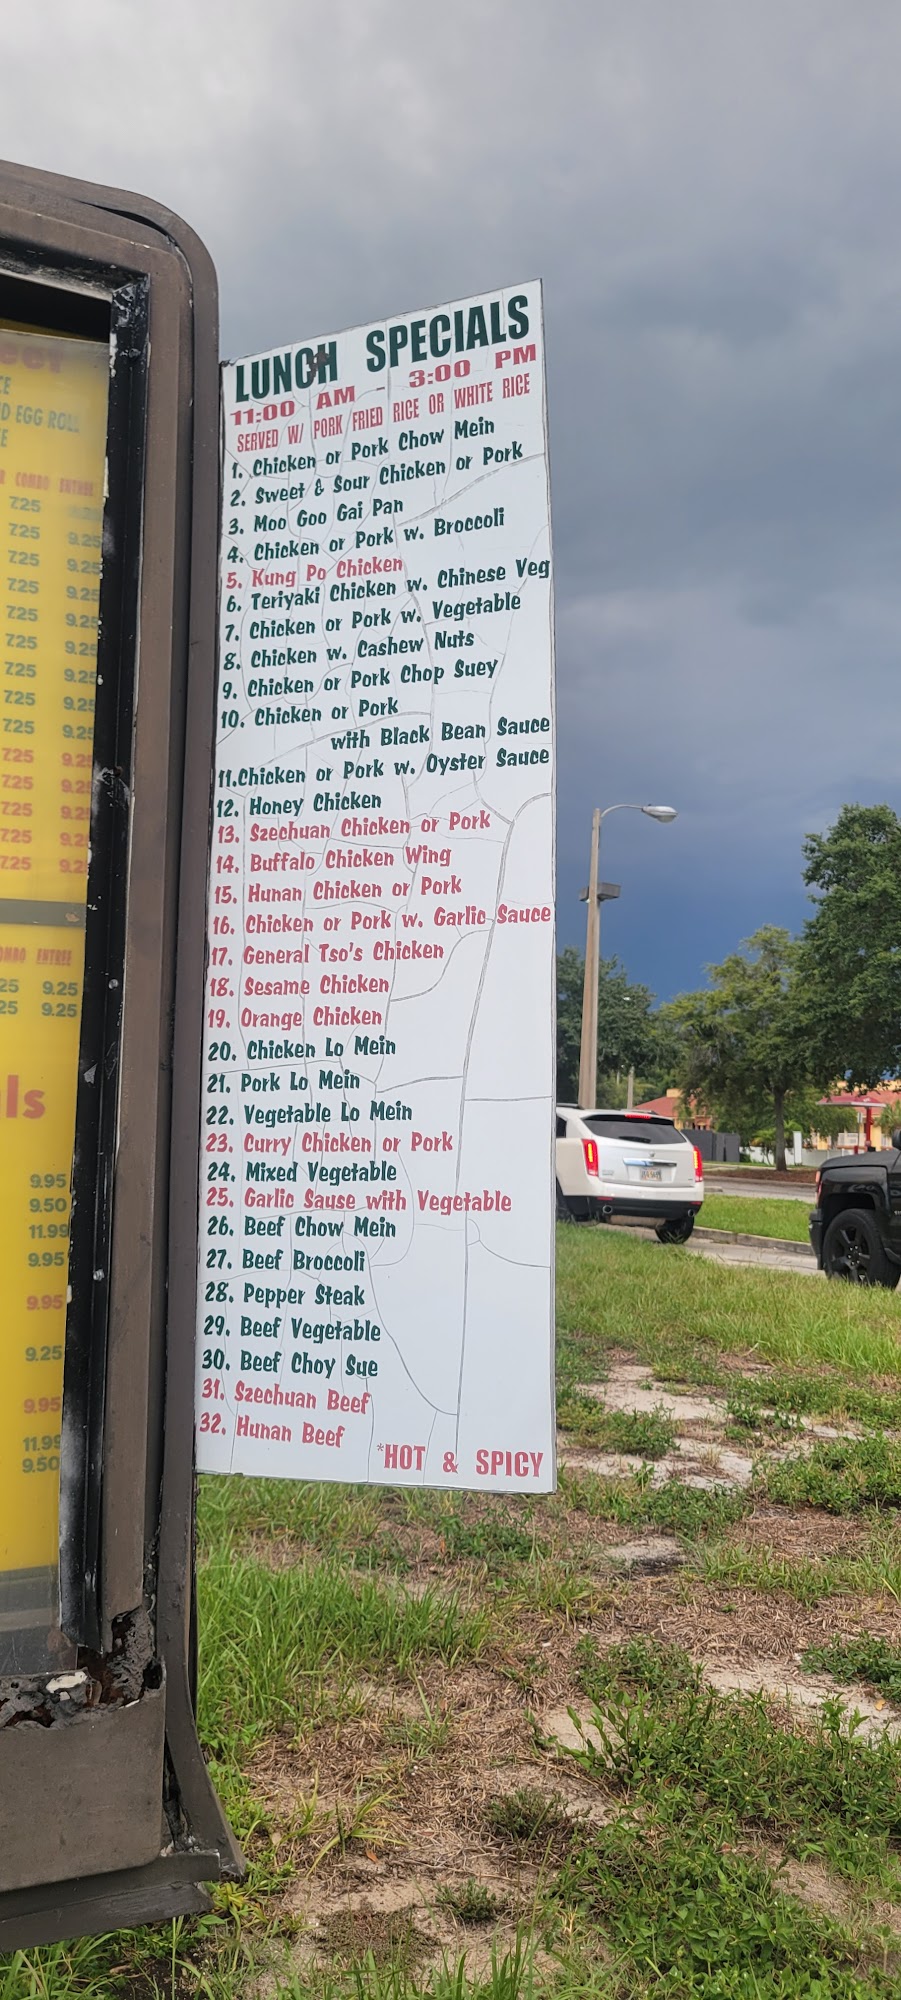 LUNCH SPECIALS
11:00 AM - 3:00 PM
SERVED W/ PORK FRIED RICE OR WHITE RICE
1. Chicken or Pork Chow Mein
2. Sweet & Sour Chicken or Pork
3. Moo Goo Gai Pan
4. Chicken or Pork w. Broccoli
5. Kung Po Chicken
6. Teriyaki Chicken w. Chinese Veg
7. Chicken or Pork w. Vegetable
8. Chicken w. Cashew Nuts
9. Chicken or Pork Chop Suey
10. Chicken or Pork
with Black Bean Sauce
11.Chicken or Pork w. Oyster Sauce
12. Honey Chicken
13. Szechuan Chicken or Pork
14. Buffalo Chicken Wing
15. Hunan Chicken or Pork
16. Chicken or Pork w. Garlic Sauce
17. General Tso's Chicken
18. Sesame Chicken
19. Orange Chicken
20. Chicken Lo Mein
21. Pork Lo Mein
22. Vegetable Lo Mein
23. Curry Chicken or Pork
24. Mixed Vegetable
25. Garlic Sause with Vegetable
26. Beef Chow Mein
27. Beef Broccoli
28. Pepper Steak
29. Beef Vegetable
30. Beef Choy Sue
31. Szechuan Beef
32. Hunan Beef
*HOT & SPICY
EGG ROLL
COMBO ENTREE
7.25
7.25 9.25
7.25 9.25
7.25 9.25
7.25 9.25
7.25 9.25
7.25 9.25
7.25 9.25
7.25 9.25
7.25 9.25
7.25 9.25
7.25 9.25
7.25 9.25
7.25 9.2
ENTREE
25 9.25
25 9.25
ls
9.95
9.50
11.99
9.95
9.95
9.25
9.95
11.99
9.50